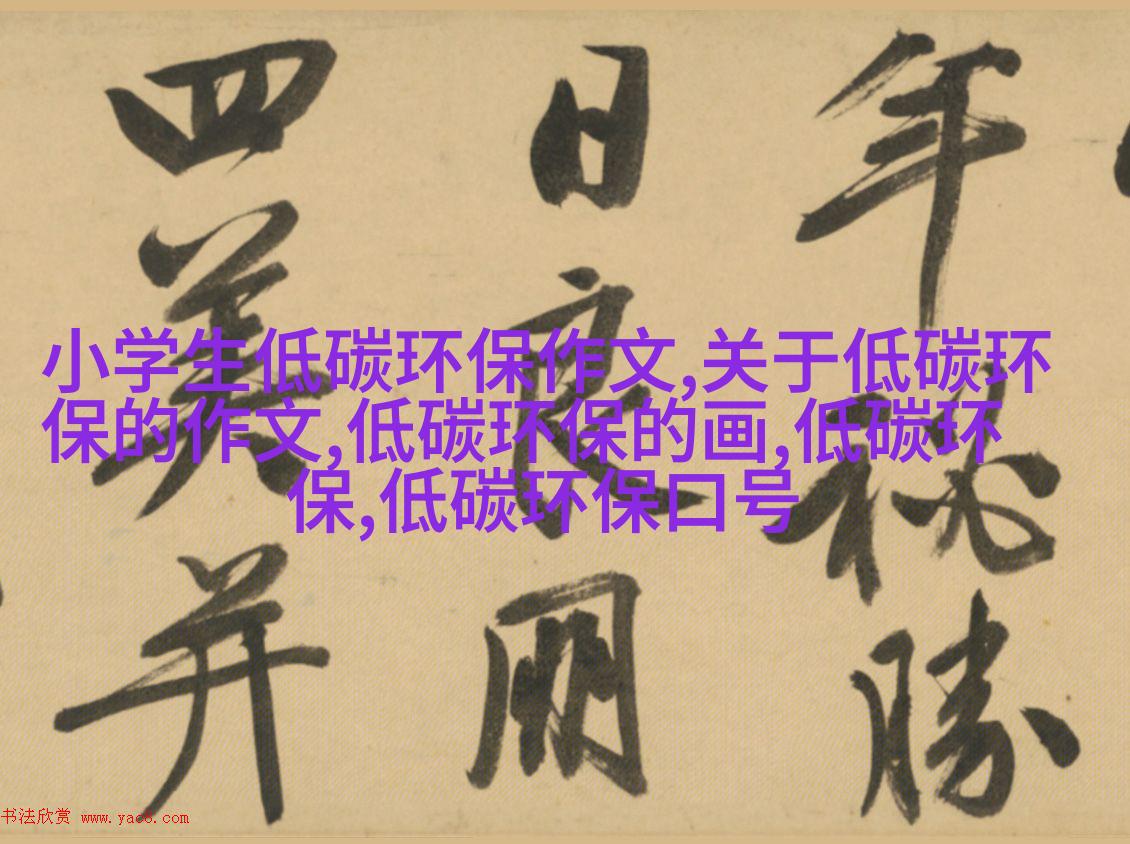 年秘勝
日良朋
四美并
小学生低碳环保作文,关于低碳环
保的作文,低碳环保的画,低碳环
保,低碳环保口号
书法欣赏 www.yac8.com